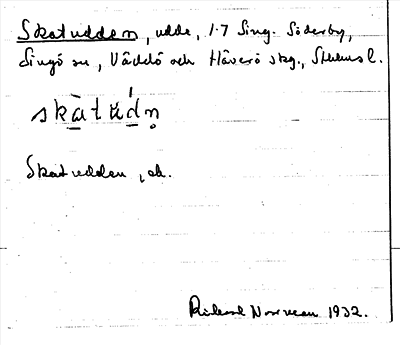 Skatudden, udde, 1.7 Sing. Söderby,
Singö sn, Väddö och Häverö skg., Sthlms l.
skàtádṇ
Skatudden, ek.
Rickard Norrman 1932.